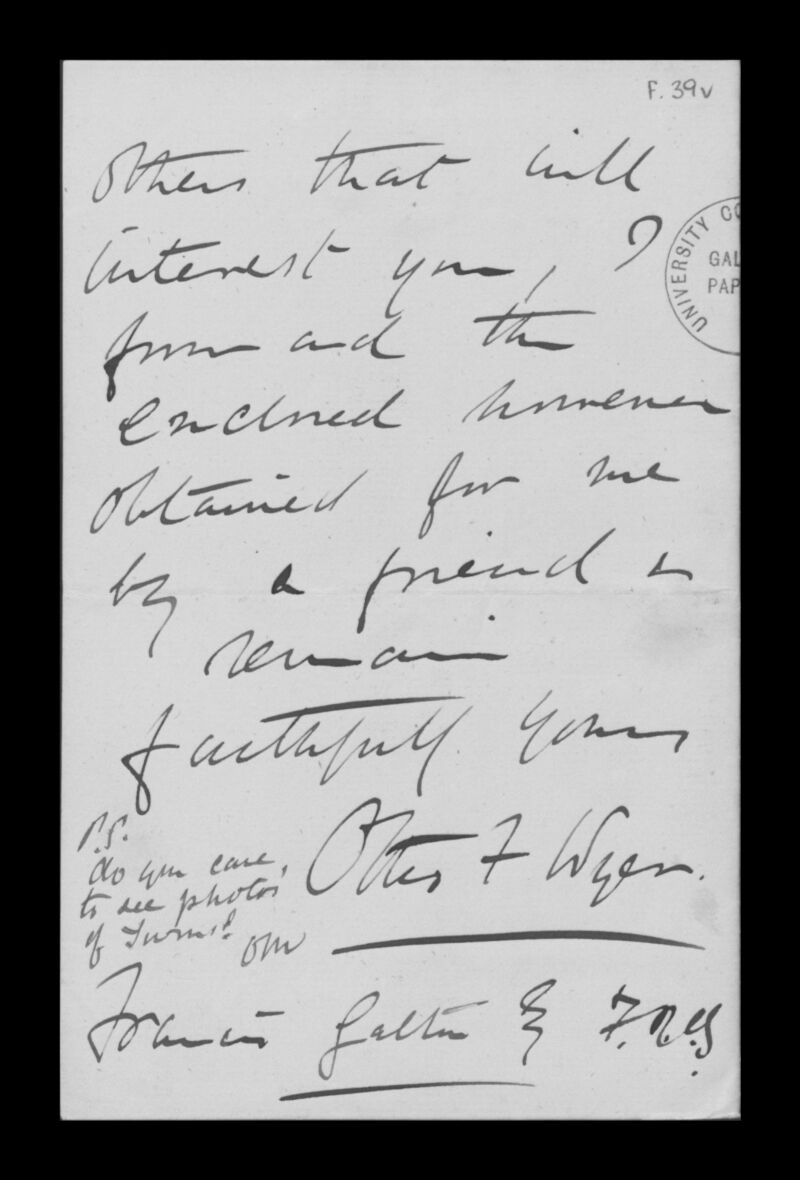 F. 39v
others that will
interest you, I
forward the
enclosed however
obtained for me
by a friend &
remain
faithfully yours
Otto F Wyer.
P.S.
do you care,
to see photos
of Twins?
OFW
Francis Galton Esq F.R.S
UNIVERSITY CO
GAL
PAP